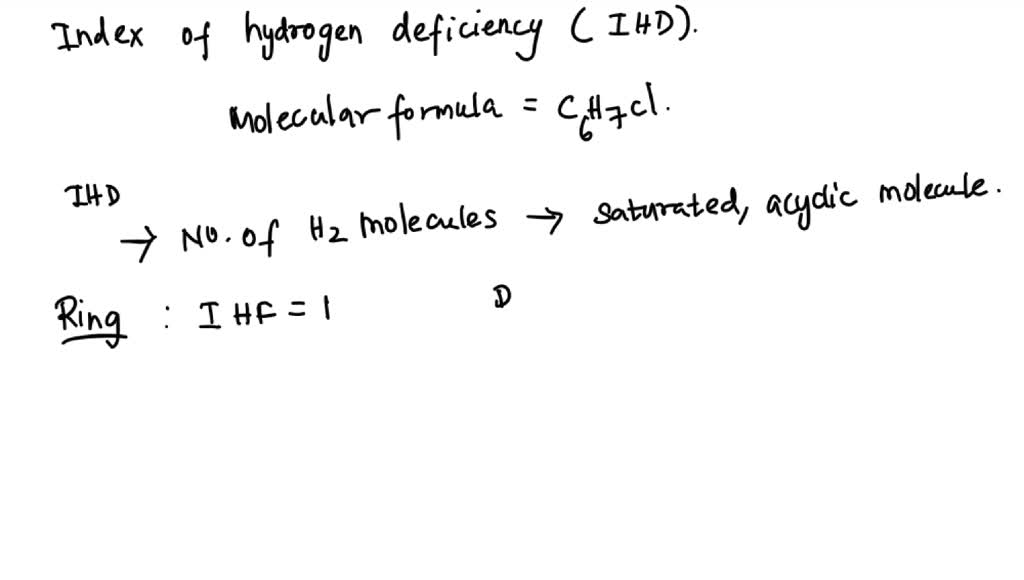 Index of hydrogen deficiency (IHD).
Molecular formula = C6H7Cl.
IHD
→ No. of H2 molecules → saturated, acydic molecule.
Ring : IHF = 1 D